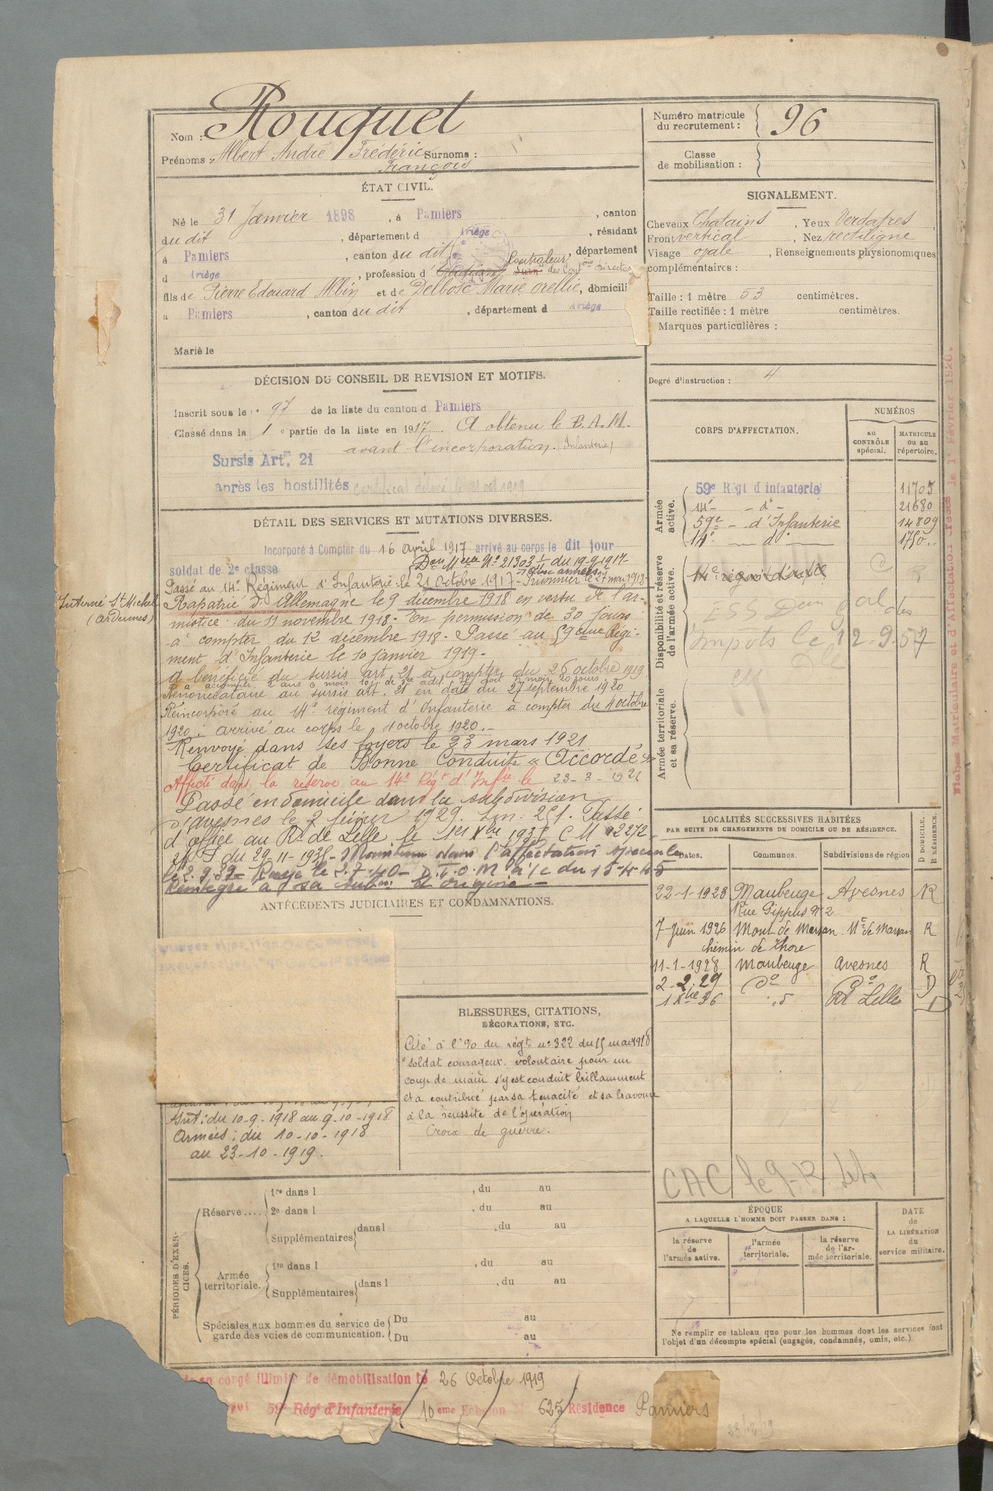 Nom : Rouquet
Prénoms : Albert André Frédéric Surnoms :
François
Numéro matricule
du recrutement : 96
Classe
de mobilisation :
ÉTAT CIVIL.
Né le 31 Janvier 1898 , à Pamiers , canton
du dit , département d Ariège , résidant
à Pamiers , canton du dit , département
d Ariège , profession d Étudiant Contrôleur des Cont. directes
fils de Pierre Edouard Albin et de Delbosc Marie , domicili
à Pamiers , canton du dit , département d Ariège
Marié le
SIGNALEMENT.
Cheveux Chatains , Yeux Verdatres
Front vertical , Nez rectiligne
Visage ovale , Renseignements physionomiques
complémentaires :
Taille : 1 mètre 53 centimètres.
Taille rectifiée : 1 mètre centimètres.
Marques particulières :
Degré d'instruction : 4
DÉCISION DU CONSEIL DE REVISION ET MOTIFS.
Inscrit sous le n° 97 de la liste du canton d Pamiers
Classé dans la 1e partie de la liste en 1917. A obtenu le B.A.M.
avant l'incorporation. (Infanterie)
Sursis Art. 21
après les hostilités
CORPS D'AFFECTATION.
NUMÉROS
AU CONTRÔLE spécial.
MATRICULE ou au répertoire.
Armée active.
59e Régt d'Infanterie 11705
14e - d° - 21680
59e - d'Infanterie 14809
14e d°
Disponibilité et réserve de l'armée active.
14e régiment d'inf.
ESS Don Gal des
Impots le 12-9-57
Armée territoriale et sa réserve.
DÉTAIL DES SERVICES ET MUTATIONS DIVERSES.
Incorporé à Compter du 16 avril 1917 arrivé au corps le dit jour
soldat de 2e classe
Passé au 14e Régiment d'Infanterie le 21 octobre 1917 - Prisonnier le 27 mai 1918
Interné St Michel
(Ardennes)
Rapatrié d'Allemagne le 9 décembre 1918 en vertu de l'ar-
mistice du 11 novembre 1918 - En permission de 30 jours
à compter du 12 décembre 1918 - Passé au 59ème Régi-
ment d'Infanterie le 10 janvier 1919 -
A bénéficié du sursis art. 21 à compter du 26 octobre 1919
Renonciataire au sursis art. 21 en date du 27 septembre 1920
Réincorporé au 14e régiment d'Infanterie à compter du 4 octobre
1920, arrivé au corps le 1 octobre 1920. -
Renvoyé dans ses foyers le 23 mars 1921
Certificat de Bonne Conduite « Accordé »
Affecté dans la réserve au 14e Rég. d'Infie le 23-3-1921
Passé en domicile dans la subdivision
d'Avesnes le 2 février 1929. Passé
d'office au Rt de Lille le
du 29-11-1935 - Maintenu dans l'affectation spéciale
le 2.9.39 - Rayé le 2.7.40 - D.T.O.M. a/c du 15-4-45
Réintégré à sa Subon d'origine -
ANTÉCÉDENTS JUDICIAIRES ET CONDAMNATIONS.
LOCALITÉS SUCCESSIVES HABITÉES
PAR SUITE DE CHANGEMENTS DE DOMICILE OU DE RÉSIDENCE.
Dates. Communes. Subdivisions de région. D DOMICILE. R RÉSIDENCE.
22-1-1923 Maubeuge Avesnes R
7-Juin 1926 Mont de Marsan Mt de Marsan R
11-1-1928 Maubeuge Avesnes R
2-2.29 d° d° D
Lille D
BLESSURES, CITATIONS,
DÉCORATIONS, ETC.
Cité à l'O. du régt n° 322 du 15 mai 1918
"soldat courageux. volontaire pour un
coup de main s'y est conduit brillamment
et a contribué par sa tenacité et sa bravoure
à la réussite de l'opération
Croix de guerre.
Int : du 10-9-1918 au 9-10-1918
Armées : du 10-10-1918
au 23-10-1919.
CAC le 9-12
PÉRIODES D'EXERCICES.
Réserve ..... 1re dans l , du au
2e dans l , du au
Supplémentaires dans l , du au
, du au
Armée territoriale. 1re dans l , du au
Supplémentaires dans l , du au
Spéciales aux hommes du service de garde des voies de communication. Du au
Du au
ÉPOQUE
A LAQUELLE L'HOMME DOIT PASSER DANS :
la réserve de l'armée active.
l'armée territoriale.
la réserve de l'armée territoriale.
DATE de LA LIBÉRATION du service militaire.
Ne remplir ce tableau que pour les hommes dont les services font
l'objet d'un décompte spécial (engagés, condamnés, omis, etc.).
en congé illimité de démobilisation le 26 Octobre 1919
59e Régt d'Infanterie 10eme Echelon 625 Résidence Pamiers